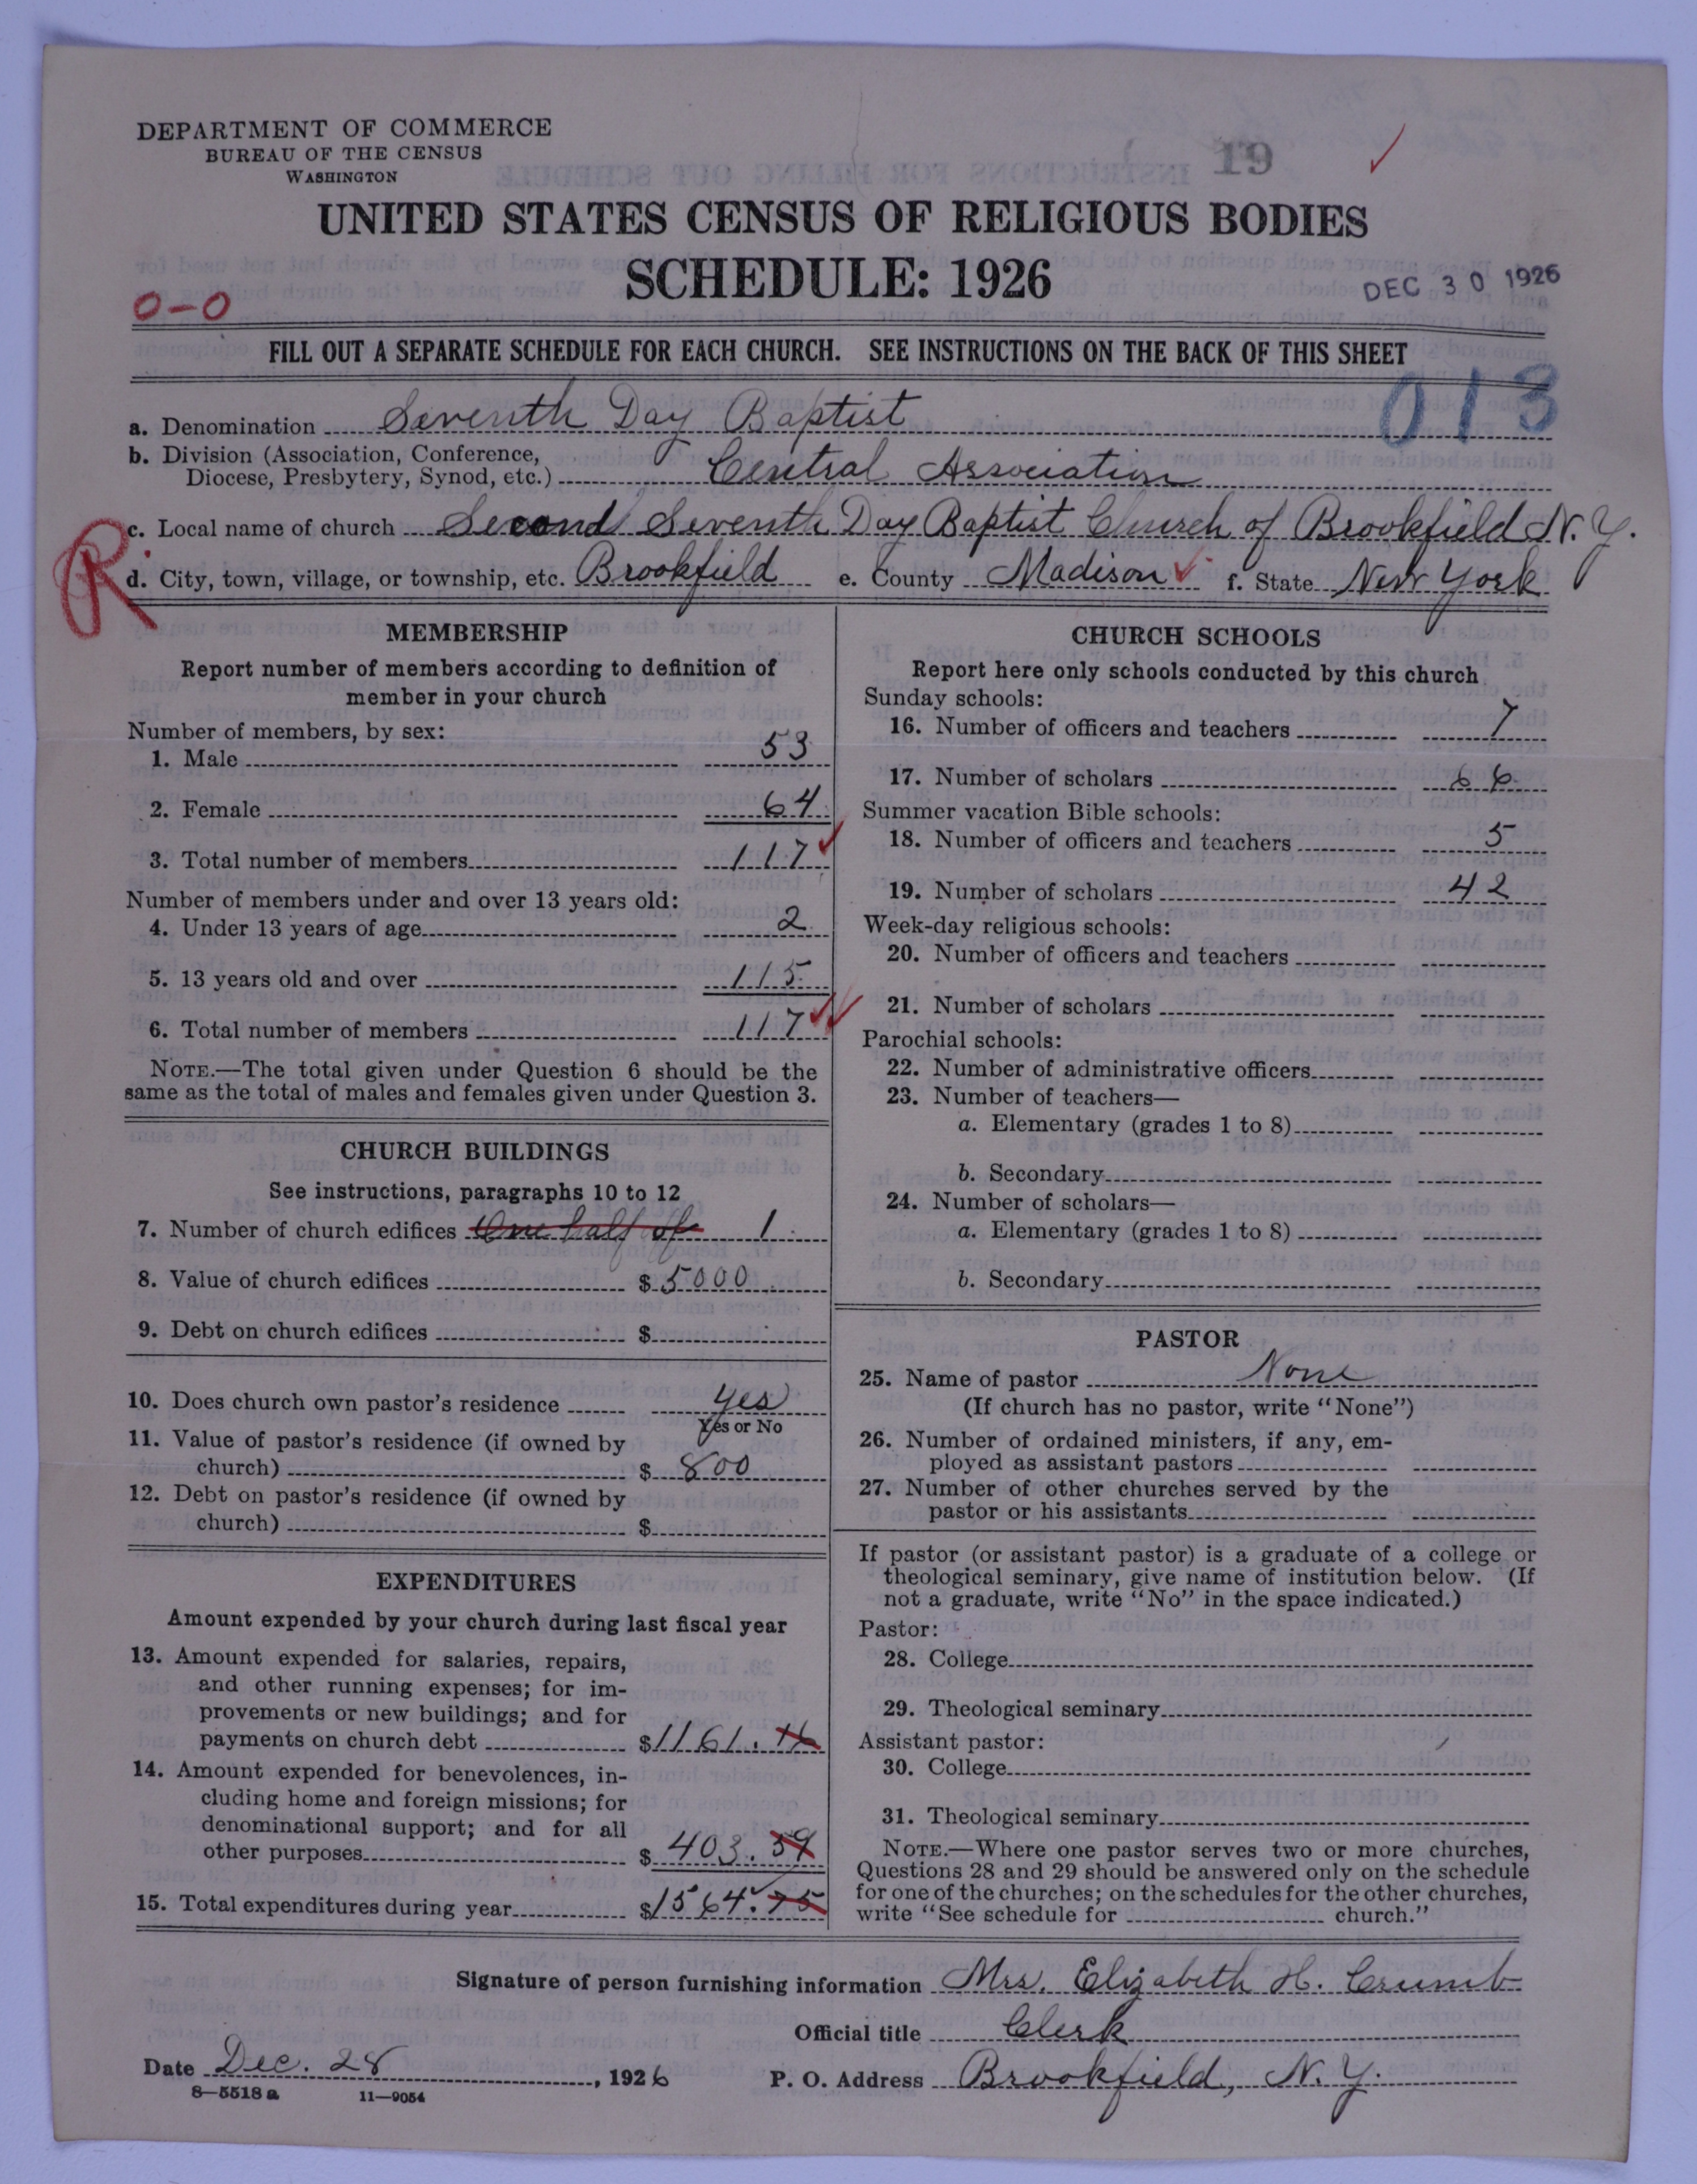 DEPARTMENT OF COMMERCE
BUREAU OF THE CENSUS
WASHINGTON
19
UNITED STATES CENSUS OF RELIGIOUS BODIES
SCHEDULE: 1926
DEC 30 1926
0-0
FILL OUT A SEPARATE SCHEDULE FOR EACH CHURCH. SEE INSTRUCTIONS ON THE BACK OF THIS SHEET
013
a. Denomination Seventh Day Baptist
b. Division (Association, Conference,
Diocese, Presbytery, Synod, etc.) Central Association
c. Local name of church Second Seventh Day Baptist Church of Brookfield N.Y.
R
d. City, town, village, or township, etc. Brookfield e. County Madison f. State New York
MEMBERSHIP
Report number of members according to definition of
member in your church
Number of members, by sex:
1. Male 53
2. Female 64
3. Total number of members 117
Number of members under and over 13 years old:
4. Under 13 years of age 2
5. 13 years old and over 115
6. Total number of members 117
NOTE.—The total given under Question 6 should be the
same as the total of males and females given under Question 3.
CHURCH BUILDINGS
See instructions, paragraphs 10 to 12
7. Number of church edifices One half of 1
8. Value of church edifices $ 5000
9. Debt on church edifices $
10. Does church own pastor's residence Yes
Yes or No
11. Value of pastor's residence (if owned by
church) $ 800
12. Debt on pastor's residence (if owned by
church) $
EXPENDITURES
Amount expended by your church during last fiscal year
13. Amount expended for salaries, repairs,
and other running expenses; for im-
provements or new buildings; and for
payments on church debt $ 1161.16
14. Amount expended for benevolences, in-
cluding home and foreign missions; for
denominational support; and for all
other purposes $ 403.59
15. Total expenditures during year $ 1564.75
CHURCH SCHOOLS
Report here only schools conducted by this church
Sunday schools:
16. Number of officers and teachers 7
17. Number of scholars 66
Summer vacation Bible schools:
18. Number of officers and teachers 5
19. Number of scholars 42
Week-day religious schools:
20. Number of officers and teachers
21. Number of scholars
Parochial schools:
22. Number of administrative officers
23. Number of teachers—
a. Elementary (grades 1 to 8)
b. Secondary
24. Number of scholars—
a. Elementary (grades 1 to 8)
b. Secondary
PASTOR
25. Name of pastor None
(If church has no pastor, write "None")
26. Number of ordained ministers, if any, em-
ployed as assistant pastors
27. Number of other churches served by the
pastor or his assistants
If pastor (or assistant pastor) is a graduate of a college or
theological seminary, give name of institution below. (If
not a graduate, write "No" in the space indicated.)
Pastor:
28. College
29. Theological seminary
Assistant pastor:
30. College
31. Theological seminary
NOTE.—Where one pastor serves two or more churches,
Questions 28 and 29 should be answered only on the schedule
for one of the churches; on the schedules for the other churches,
write "See schedule for church."
Signature of person furnishing information Mrs. Elizabeth H. Crumb
Official title Clerk
Date Dec. 28, 1926
P. O. Address Brookfield, N.Y.
8—5518 a 11—9054